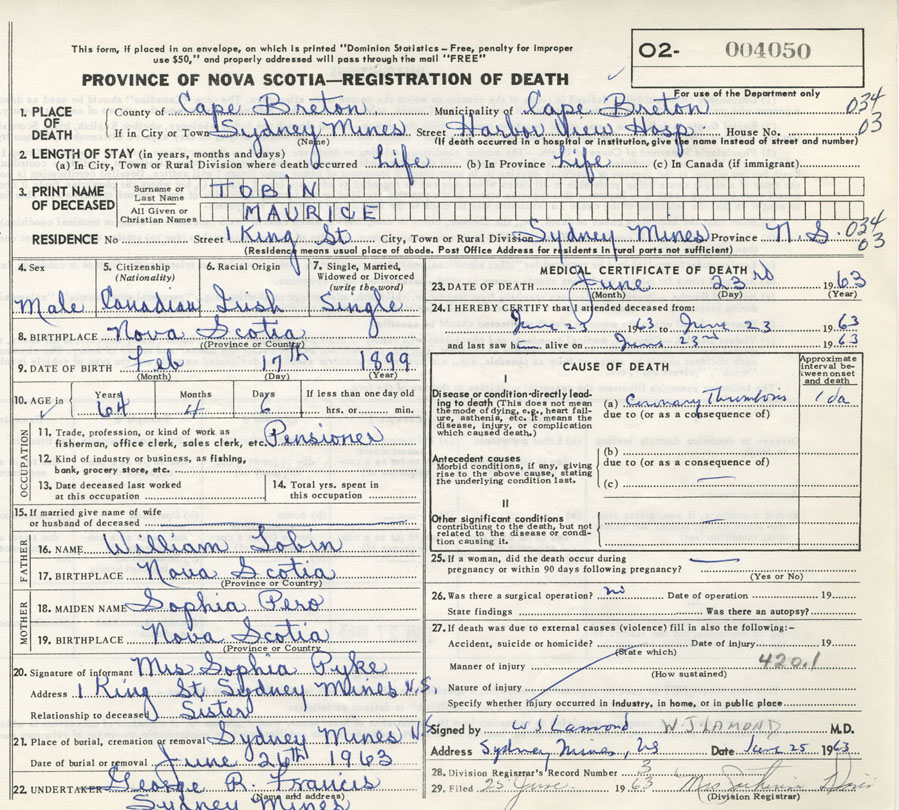 This form, if placed in an envelope, on which is printed "Dominion Statistics – Free, penalty for improper
use $50," and properly addressed will pass through the mail "FREE"
O2- 004050
For use of the Department only
PROVINCE OF NOVA SCOTIA—REGISTRATION OF DEATH
1. PLACE OF DEATH County of Cape Breton Municipality of Cape Breton 034
If in City or Town Sydney Mines Street Harbor View Hosp. House No. 03
(Name) (If death occurred in a hospital or institution, give the name instead of street and number)
2. LENGTH OF STAY (in years, months and days)
(a) In City, Town or Rural Division where death occurred life (b) In Province Life (c) In Canada (if immigrant)
3. PRINT NAME OF DECEASED Surname or Last Name TOBIN
All Given or Christian Names MAURICE
RESIDENCE No Street 1 King St City, Town or Rural Division Sydney Mines Province N.S. 034 03
(Residence means usual place of abode. Post Office Address for residents in rural parts not sufficient)
4. Sex 5. Citizenship (Nationality) 6. Racial Origin 7. Single, Married, Widowed or Divorced (write the word)
Male Canadian Irish Single
8. BIRTHPLACE Nova Scotia
(Province or Country)
9. DATE OF BIRTH Feb 17th 1899
(Month) (Day) (Year)
10. AGE in Years Months Days If less than one day old
64 4 6 hrs. or min.
OCCUPATION
11. Trade, profession, or kind of work as
fisherman, office clerk, sales clerk, etc. Pensioner
12. Kind of industry or business, as fishing,
bank, grocery store, etc.
13. Date deceased last worked at this occupation
14. Total yrs. spent in this occupation
15. If married give name of wife
or husband of deceased
FATHER
16. NAME William Tobin
17. BIRTHPLACE Nova Scotia
(Province or Country)
MOTHER
18. MAIDEN NAME Sophia Pero
19. BIRTHPLACE Nova Scotia
(Province or Country
20. Signature of informant Mrs Sophia Pyke
Address 1 King St Sydney Mines N.S.
Relationship to deceased Sister
21. Place of burial, cremation or removal Sydney Mines N.S
Date of burial or removal June 26th 1963
22. UNDERTAKER George R. Francis
(Name and address)
Sydney Mines
MEDICAL CERTIFICATE OF DEATH
23. DATE OF DEATH June 23rd 1963
(Month) (Day) (Year)
24. I HEREBY CERTIFY that I attended deceased from:
June 23 1963 to June 23 1963
and last saw him alive on June 23rd 1963
CAUSE OF DEATH
Approximate interval between onset and death
I
Disease or condition directly leading to death (This does not mean the mode of dying, e.g., heart failure, asthenia, etc. It means the disease, injury, or complication which caused death.)
(a) Coronary Thrombosis 1 da
due to (or as a consequence of)
Antecedent causes
Morbid conditions, if any, giving rise to the above cause, stating the underlying condition last.
(b)
due to (or as a consequence of)
(c)
II
Other significant conditions
contributing to the death, but not related to the disease or condition causing it.
25. If a woman, did the death occur during
pregnancy or within 90 days following pregnancy?
(Yes or No)
26. Was there a surgical operation? no Date of operation 19
State findings Was there an autopsy?
27. If death was due to external causes (violence) fill in also the following:–
Accident, suicide or homicide? Date of injury 19
(State which)
Manner of injury 420.1
(How sustained)
Nature of injury
Specify whether injury occurred in industry, in home, or in public place
Signed by W S Lamond W J LAMOND M.D.
Address Sydney Mines, NS Date June 25 1963
28. Division Registrar's Record Number 3
29. Filed 25 June 1963 Mrs
(Division Registrar)